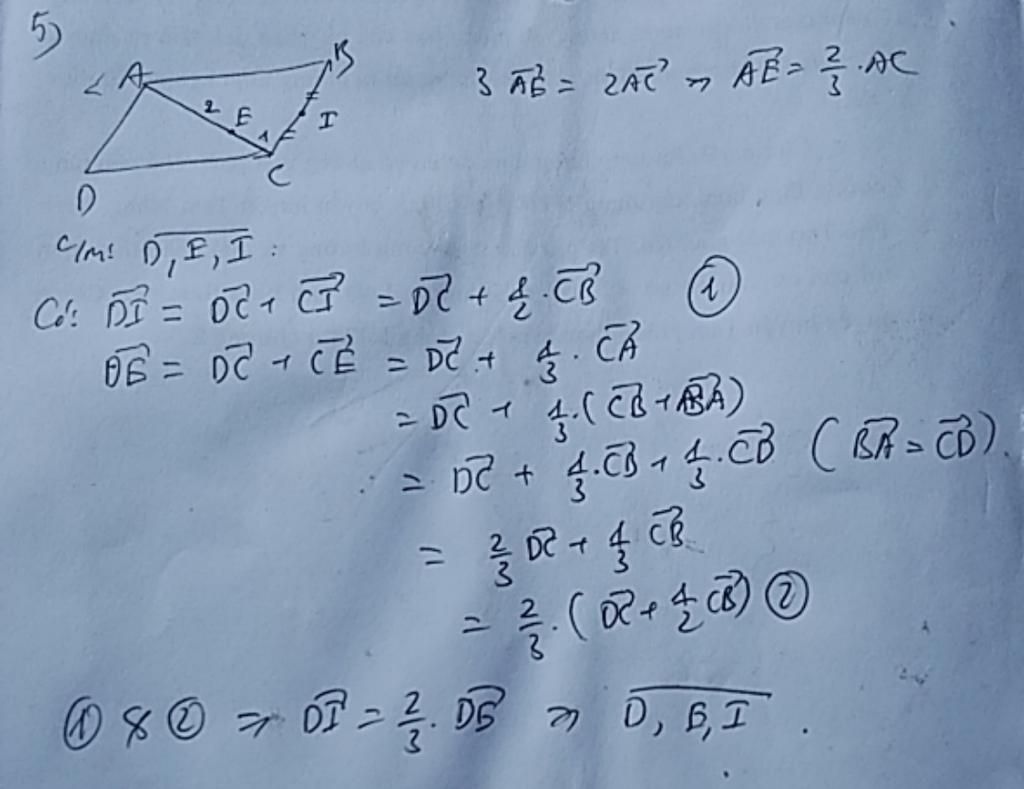 5)
A B
2 E
1 I
D C
3 \vec{AE} = 2\vec{AC} => \vec{AE} = \frac{2}{3} . AC
C/m: \overline{D, E, I} .
Có: \vec{DI} = \vec{DC} + \vec{CI} = \vec{DC} + \frac{1}{2} . \vec{CB} ①
\vec{DE} = \vec{DC} + \vec{CE} = \vec{DC} + \frac{1}{3} . \vec{CA}
= \vec{DC} + \frac{1}{3} . ( \vec{CB} + \vec{BA} )
= \vec{DC} + \frac{1}{3} . \vec{CB} + \frac{1}{3} . \vec{CD} ( \vec{BA} = \vec{CD} ) .
= \frac{2}{3} \vec{DC} + \frac{1}{3} \vec{CB}
= \frac{2}{3} . ( \vec{DC} + \frac{1}{2} \vec{CB} ) ②
① & ② => \vec{DI} = \frac{2}{3} . \vec{DE} => \overline{D, E, I} .